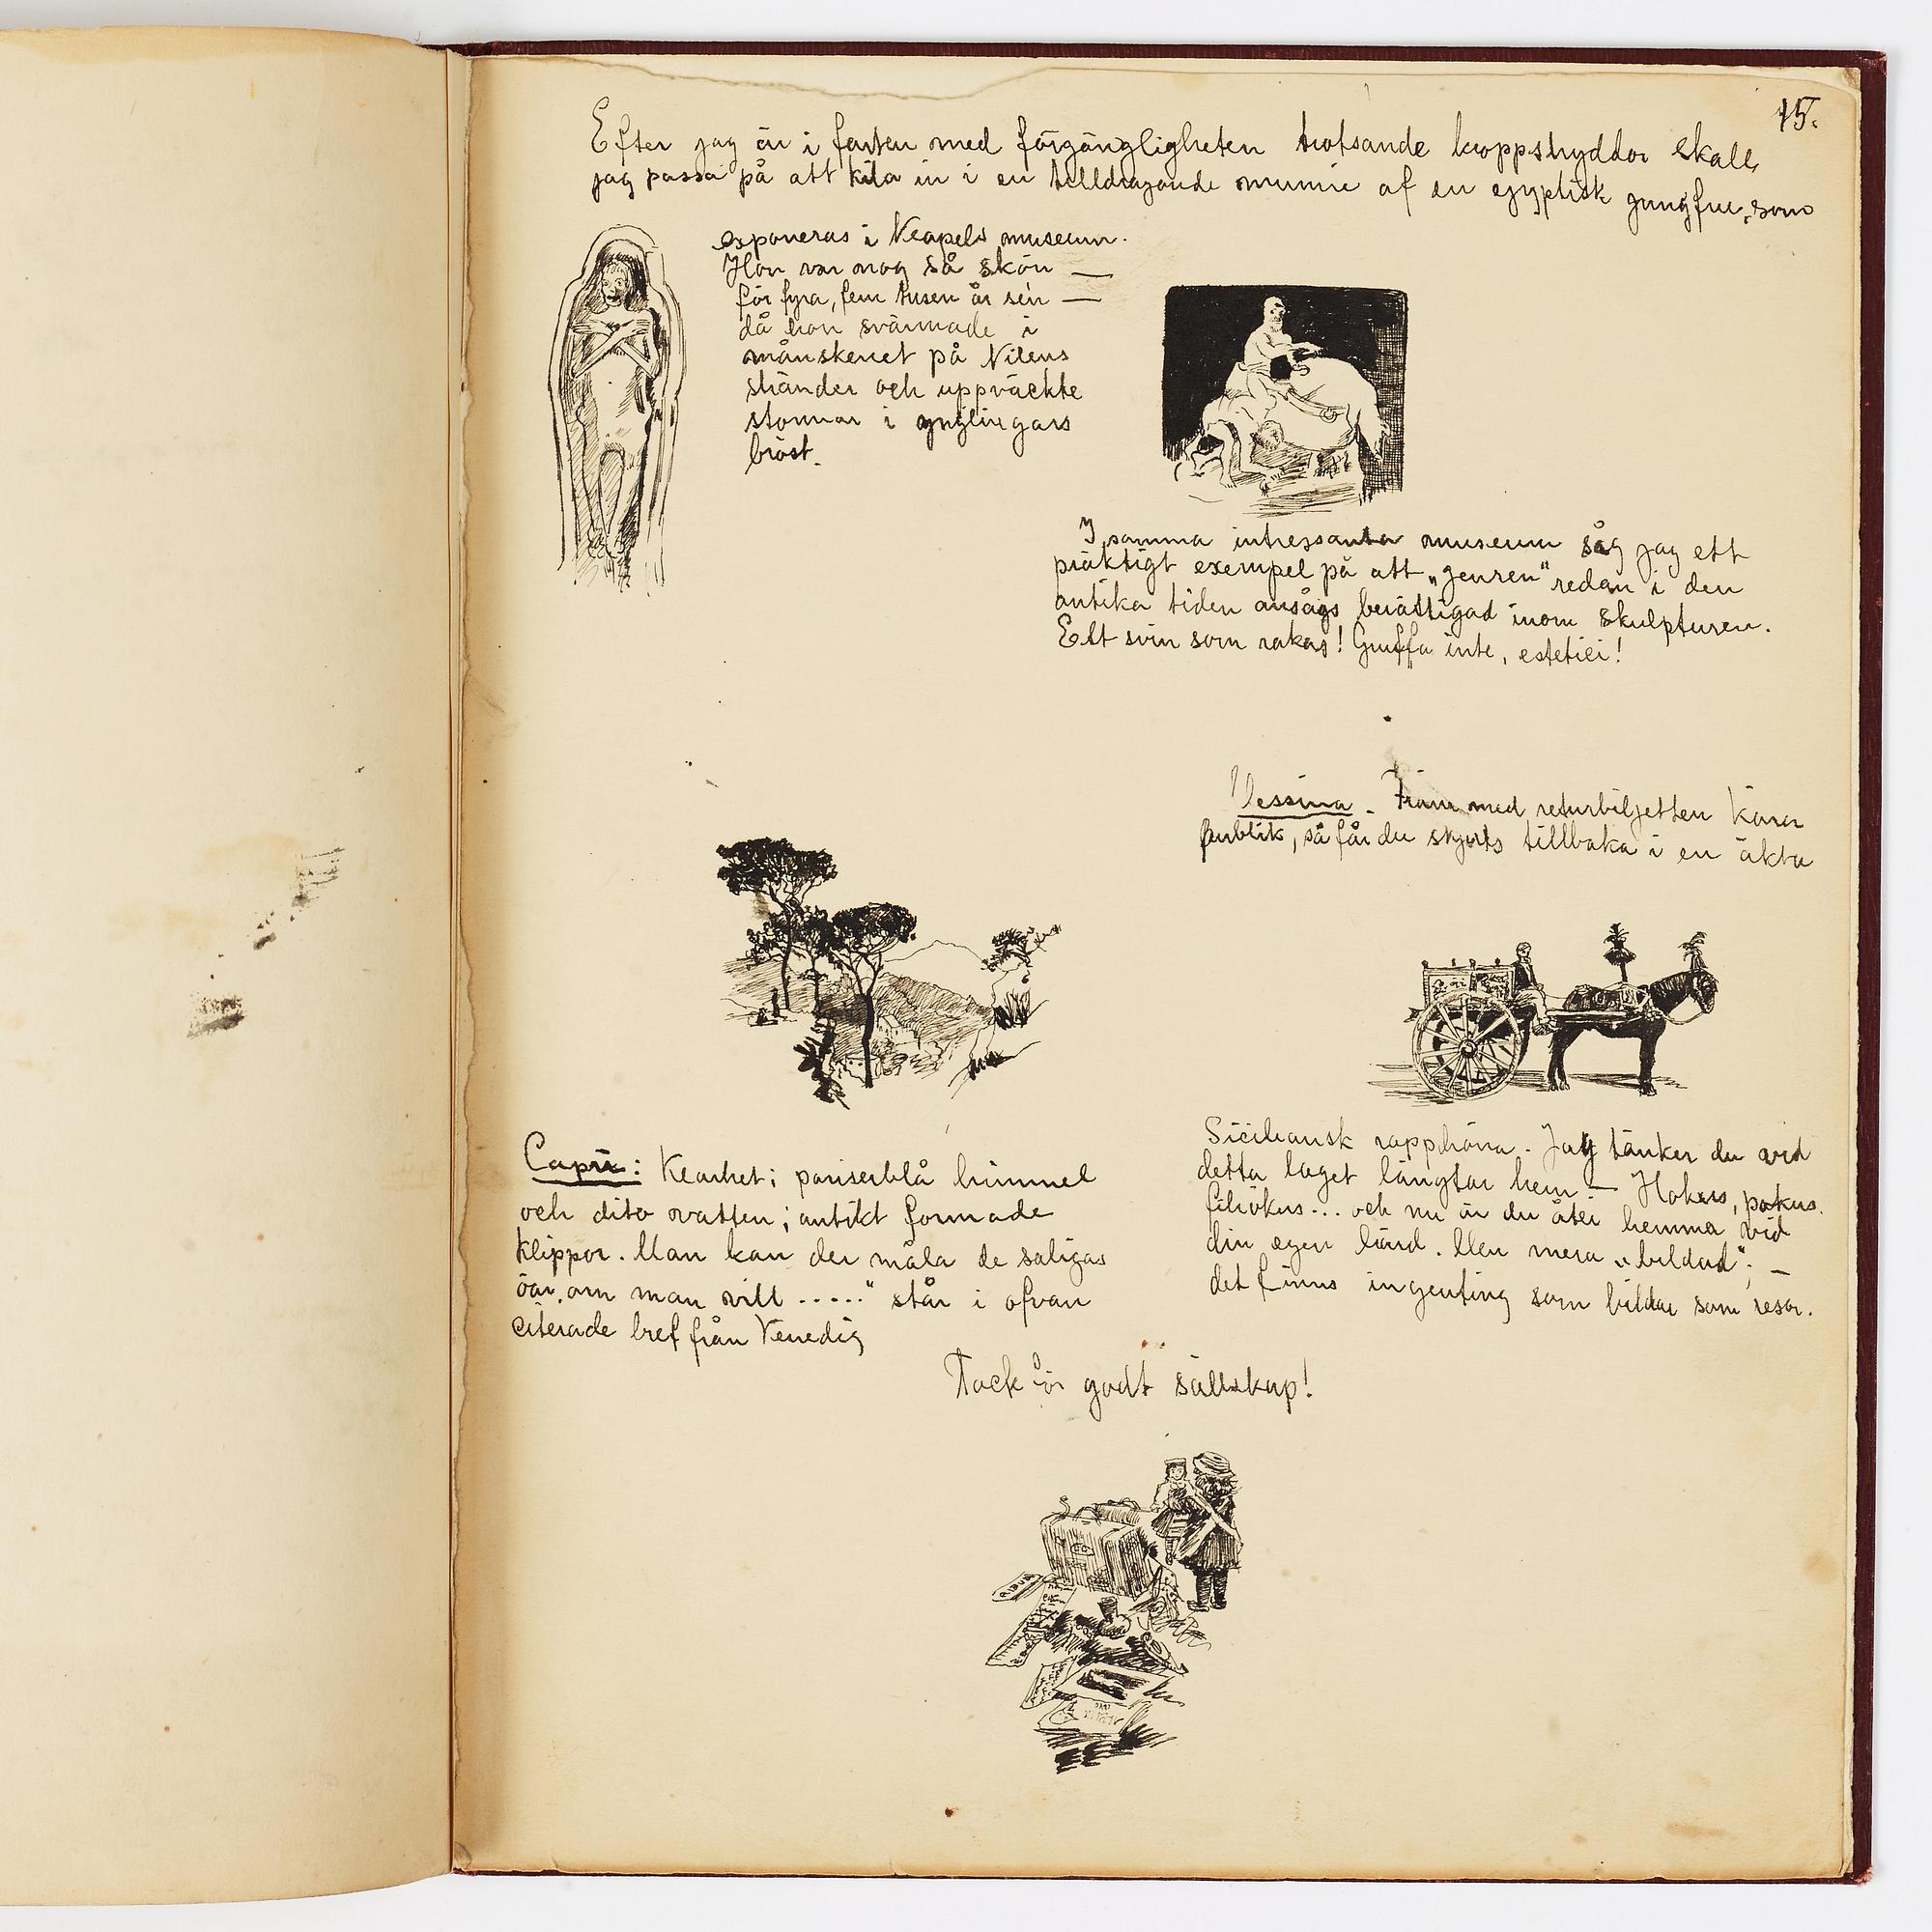 15.
Efter jag är i farten med förgängligheten trotsande kroppshyddor skall
jag passa på att kila in i en tilldragande mumie af en egyptisk jungfru, som
exponeras i Neapels museum.
Hon var nog så skön —
för fyra, fem tusen år sén —
då hon svärmade i
månskenet på Nilens
stränder och uppväckte
stormar i ynglingars
bröst.
I samma intressanta museum såg jag ett
präktigt exempel på att „genren“ redan i den
antika tiden ansågs berättigad inom skulpturen.
Ett svin som rakas! Gruffa inte, estetici!
Messina. Fram med returbiljetten Kära
publik, så får du skjuts tillbaka i en äkta
Siciliansk rapphöna. Jag tänker du vid
detta laget längtar hem — Hokus, pokus.
filiokus... och nu är du åter hemma vid
din egen härd. Men mera „bildad“; —
det finns ingenting som bildar som resor.
Capri: Klarhet; pariserblå himmel
och dito vatten; antikt formade
Klippor. Man kan der måla de saligas
öar, om man vill ....." står i ofvan
citerade bref från Venedig
Tack för godt sällskap!
ALBUM